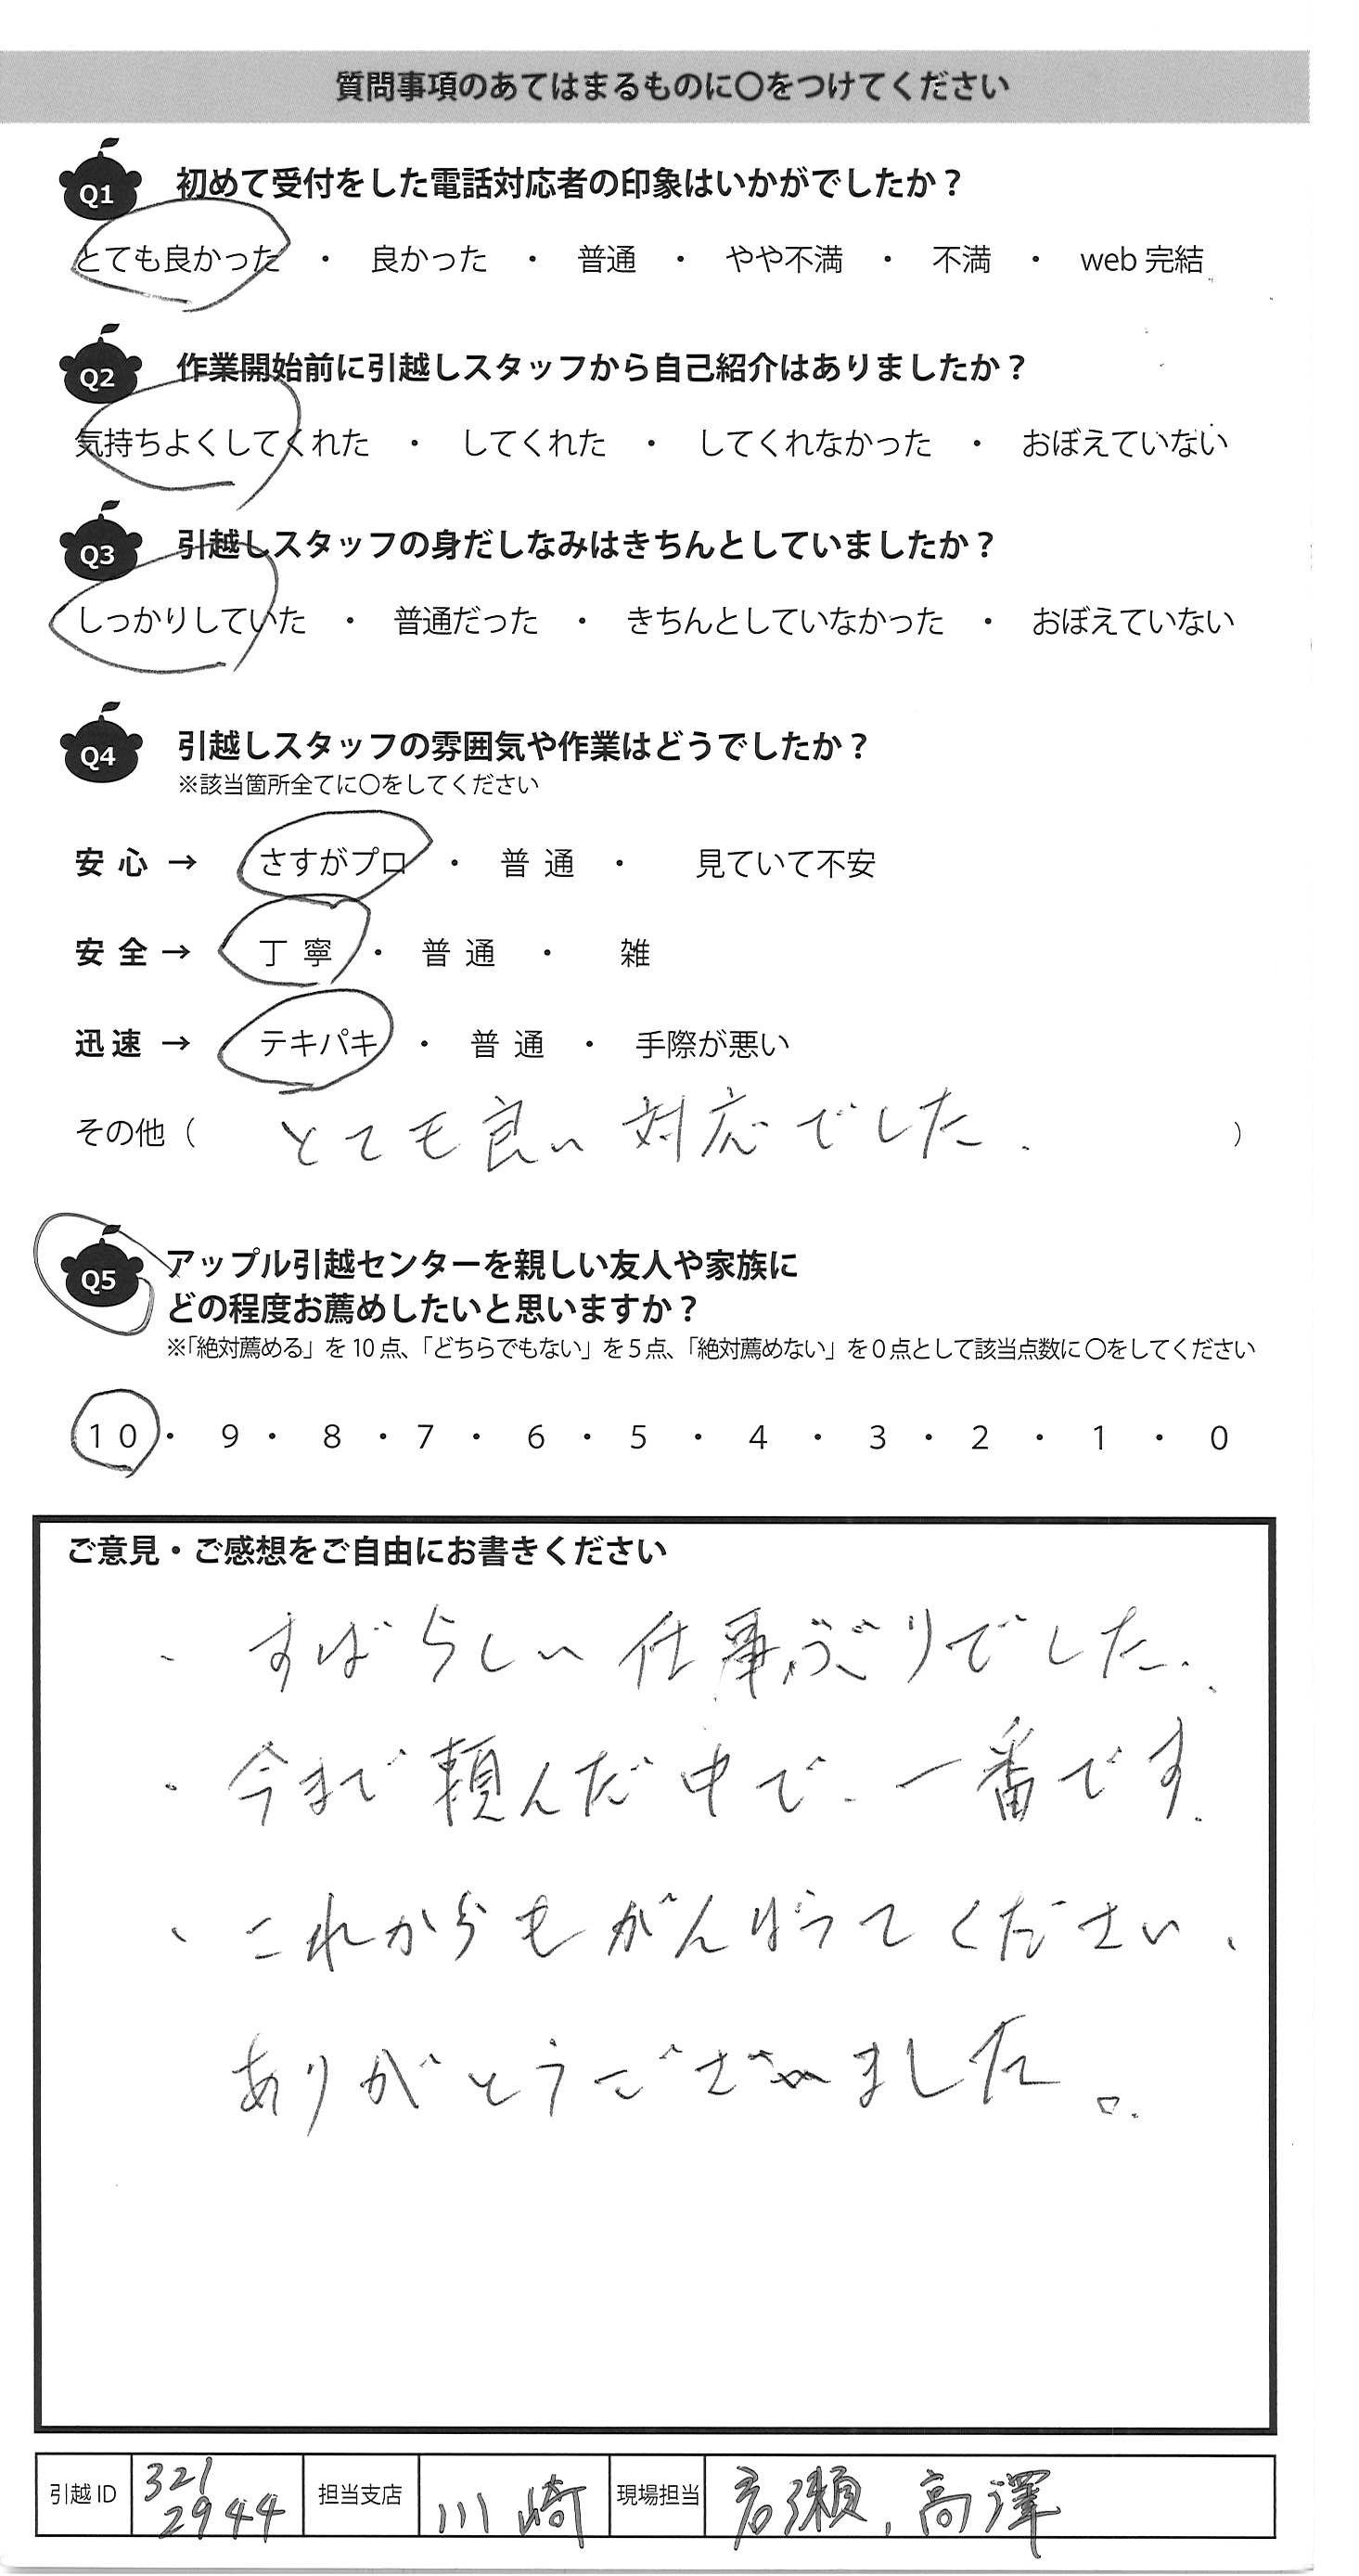 質問事項のあてはまるものに〇をつけてください
Q1 初めて受付をした電話対応者の印象はいかがでしたか？
とても良かった ・ 良かった ・ 普通 ・ やや不満 ・ 不満 ・ web 完結
Q2 作業開始前に引越しスタッフから自己紹介はありましたか？
気持ちよくしてくれた ・ してくれた ・ してくれなかった ・ おぼえていない
Q3 引越しスタッフの身だしなみはきちんとしていましたか？
しっかりしていた ・ 普通だった ・ きちんとしていなかった ・ おぼえていない
Q4 引越しスタッフの雰囲気や作業はどうでしたか？
※該当箇所全てに〇をしてください
安心 → さすがプロ ・ 普通 ・ 見ていて不安
安全 → 丁寧 ・ 普通 ・ 雑
迅速 → テキパキ ・ 普通 ・ 手際が悪い
その他（ とても良い対応でした. ）
Q5 アップル引越センターを親しい友人や家族に
どの程度お薦めしたいと思いますか？
※「絶対薦める」を 10 点、「どちらでもない」を 5 点、「絶対薦めない」を 0 点として該当点数に 〇をしてください
10 ・ 9 ・ 8 ・ 7 ・ 6 ・ 5 ・ 4 ・ 3 ・ 2 ・ 1 ・ 0
ご意見・ご感想をご自由にお書きください
・ すばらしい仕事ぶりでした.
・ 今まで頼んだ中で、一番です.
・ これからもがんばってください、
ありがとうございました。
引越 ID 321 2944 担当支店 川崎 現場担当 瀬, 高澤